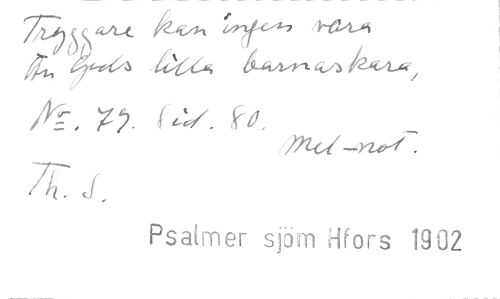 Tryggare kan ingen vara
Än Guds lilla barnaskara,
No. 79. Sid. 80.
Mel-not.
Th. S.
Psalmer sjöm Hfors 1902